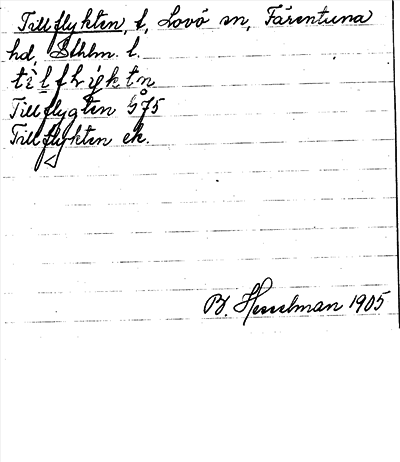 Tillflykten, t, Lovö sn, Färentuna
hd, Sthlm. l.
Tillflygten G75
Tillflykten ek.
B. Hesselman 1905